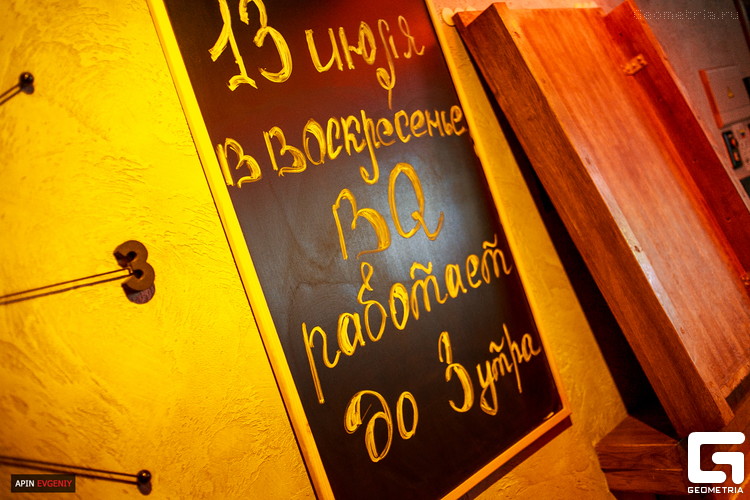 Geometria.ru
13 июля
в воскресенье
BQ
работает
до 3 утра
3
APIN EVGENIY
GEOMETRIA